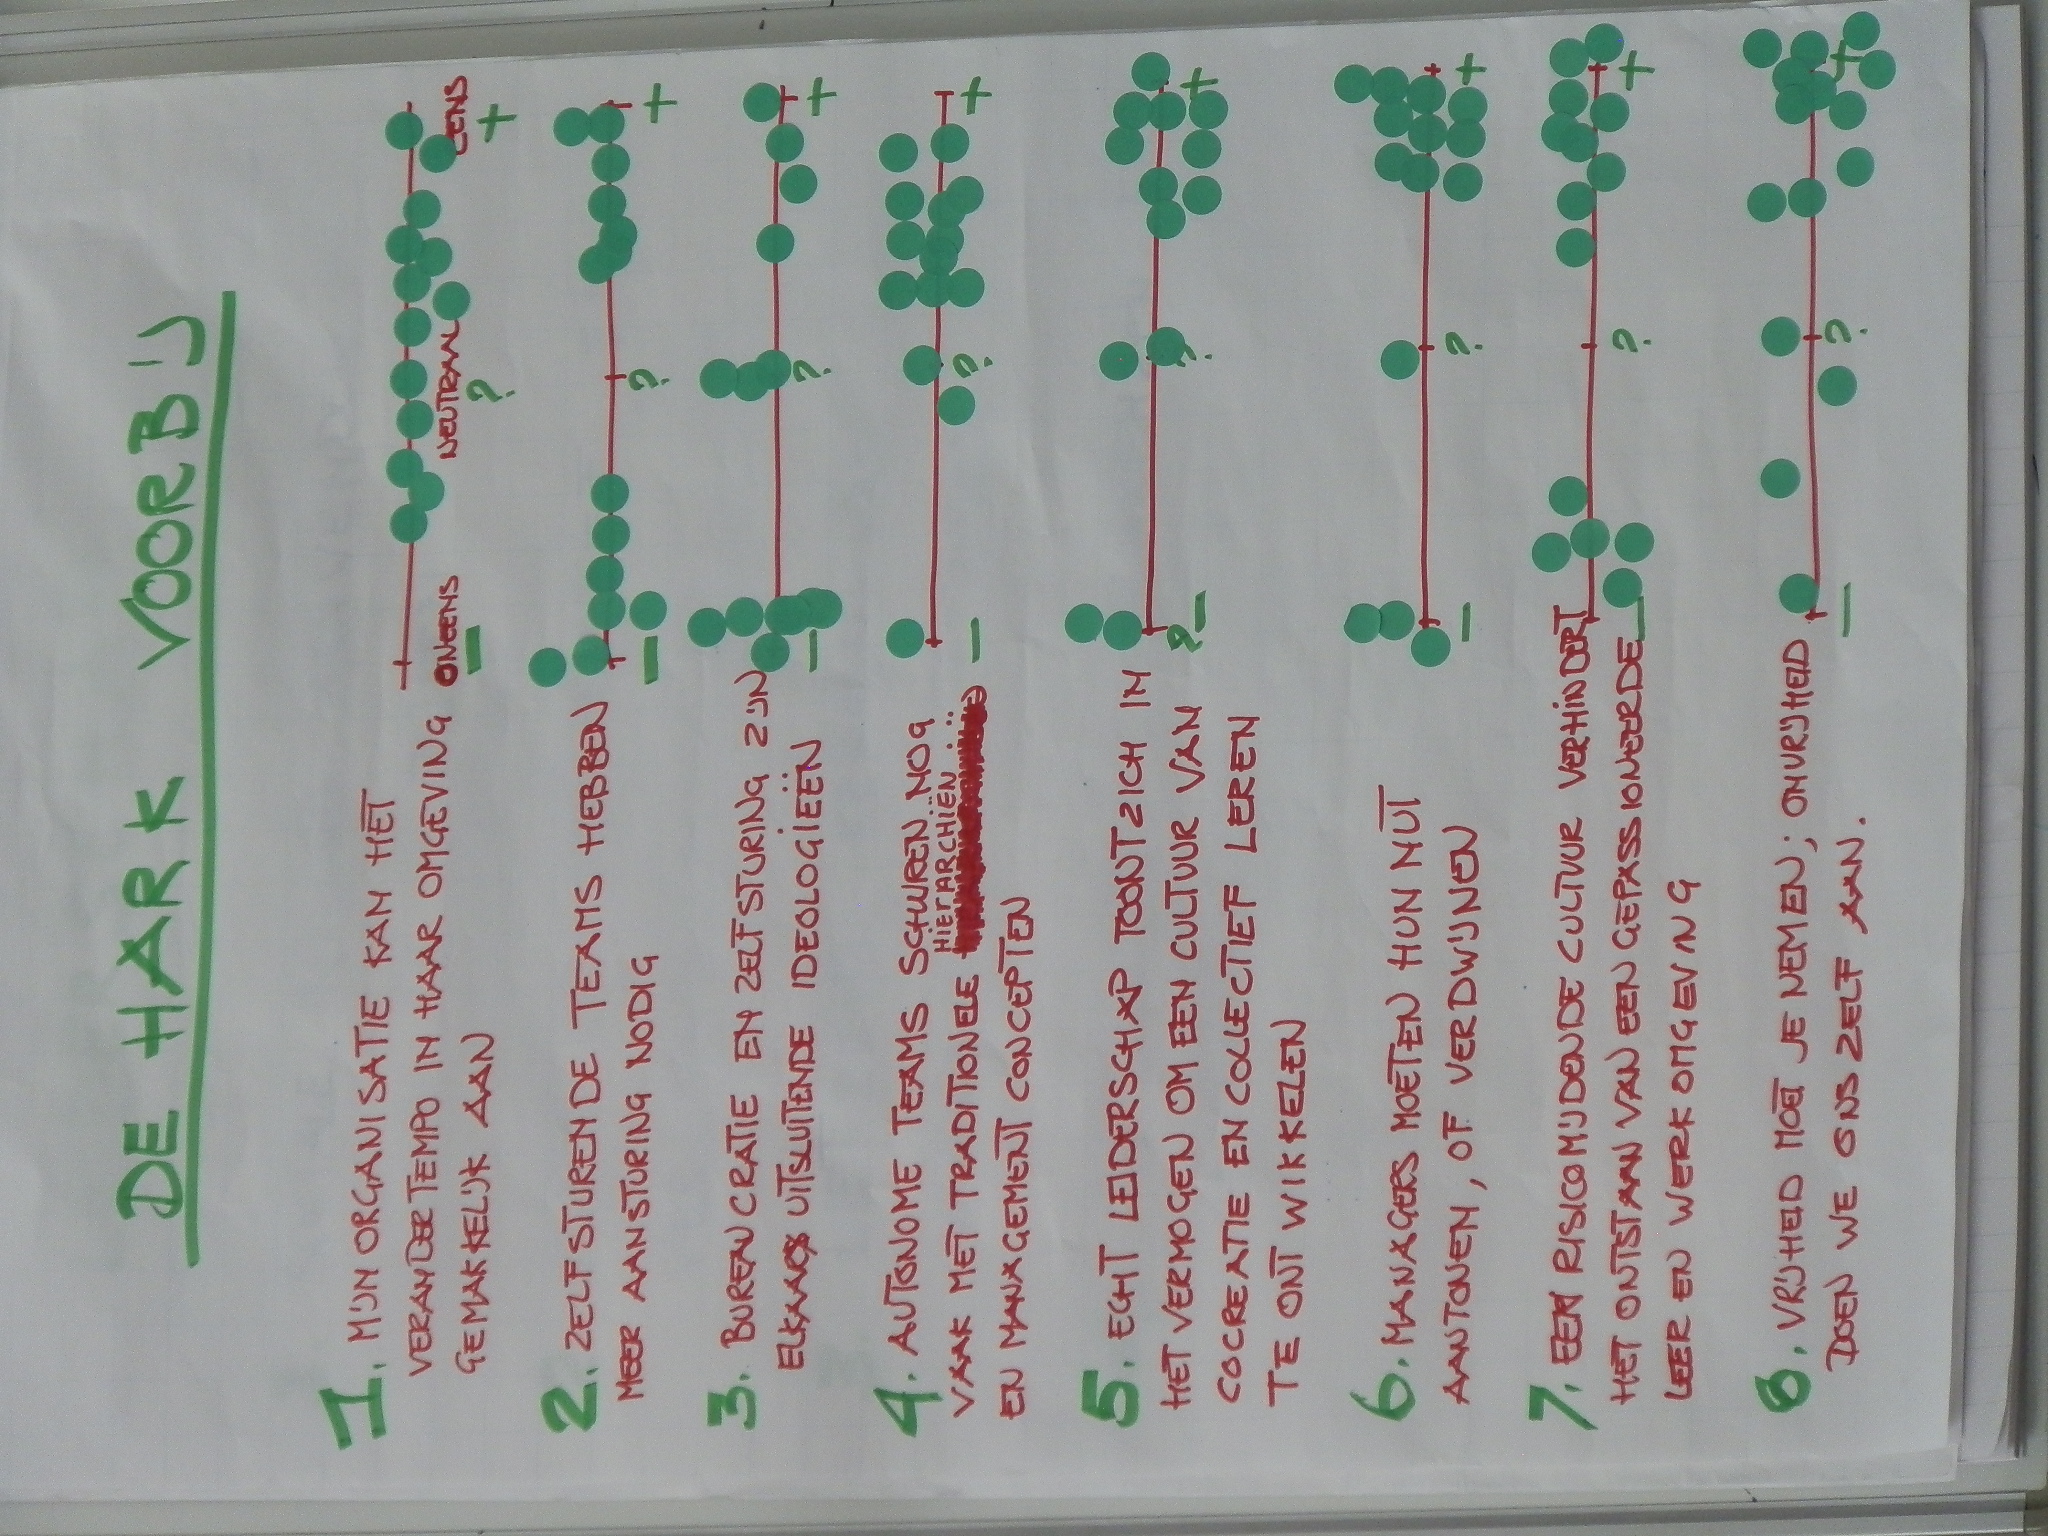 DE HARK VOORBIJ
1. MIJN ORGANISATIE KAN HET
VERANDERTEMPO IN HAAR OMGEVING
GEMAKKELIJK AAN
ONEENS NEUTRAAL EENS
- ? +
2. ZELFSTURENDE TEAMS HEBBEN
MEER AANSTURING NODIG
- ? +
3. BUREAUCRATIE EN ZELFSTURING ZIJN
ELKAAR UITSLUITENDE IDEOLOGIEËN
- ? +
4. AUTONOME TEAMS SCHUREN NOG
HIERARCHIËN
VAAK MET TRADITIONELE
EN MANAGEMENT CONCEPTEN
- ? +
5. ECHT LEIDERSCHAP TOONT ZICH IN
HET VERMOGEN OM EEN CULTUUR VAN
COCREATIE EN COLLECTIEF LEREN
TE ONTWIKKELEN
- ? +
6. MANAGERS MOETEN HUN NUT
AANTONEN, OF VERDWIJNEN
- ? +
7. EEN RISICOMIJDENDE CULTUUR VERHINDERT
HET ONTSTAAN VAN EEN GEPASSIONEERDE
LEER EN WERKOMGEVING
- ? +
8. VRIJHEID MOET JE NEMEN; ONVRIJHEID
DOEN WE ONSZELF AAN.
- ? +